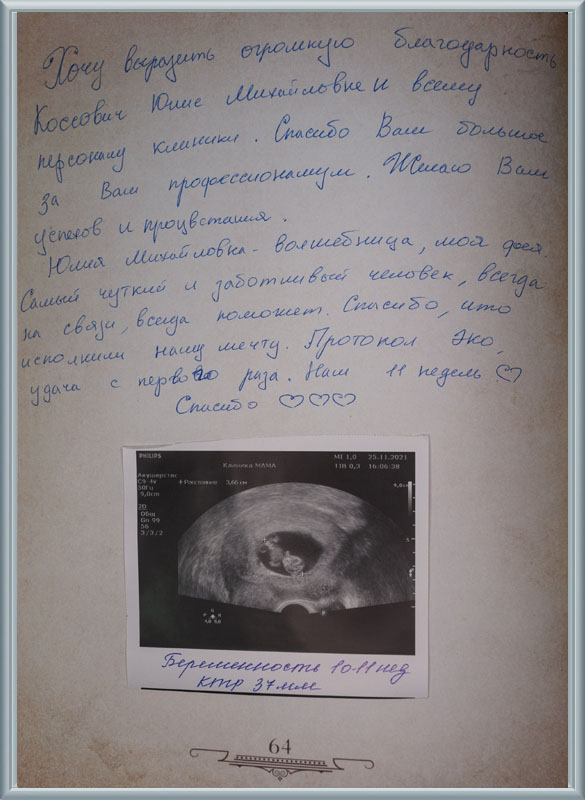 Хочу выразить огромную благодарность
Коссович Юлие Михайловне и всему
персоналу клиники. Спасибо Вам большое
за Ваш профессионализм. Желаю Вам
успехов и процветания.
Юлия Михайловна - волшебница, моя фея
Самый чуткий и заботливый человек, всегда
на связи, всегда поможет. Спасибо, что
исполнили нашу мечту. Протокол Эко,
удача с первого раза. Нам 11 недель ♡
Спасибо ♡♡♡
PHILIPS
MI 1,0 25.11.2021
Клиника МАМА
TIB 0,3 16:06:38
Акушерство
C9-4v
50Гц
9,0cm
+Расстояние 3,66 см
2D
Общ
Gn 99
56
3/3/2
Беременность 10-11 нед
КТР 37 мм
64